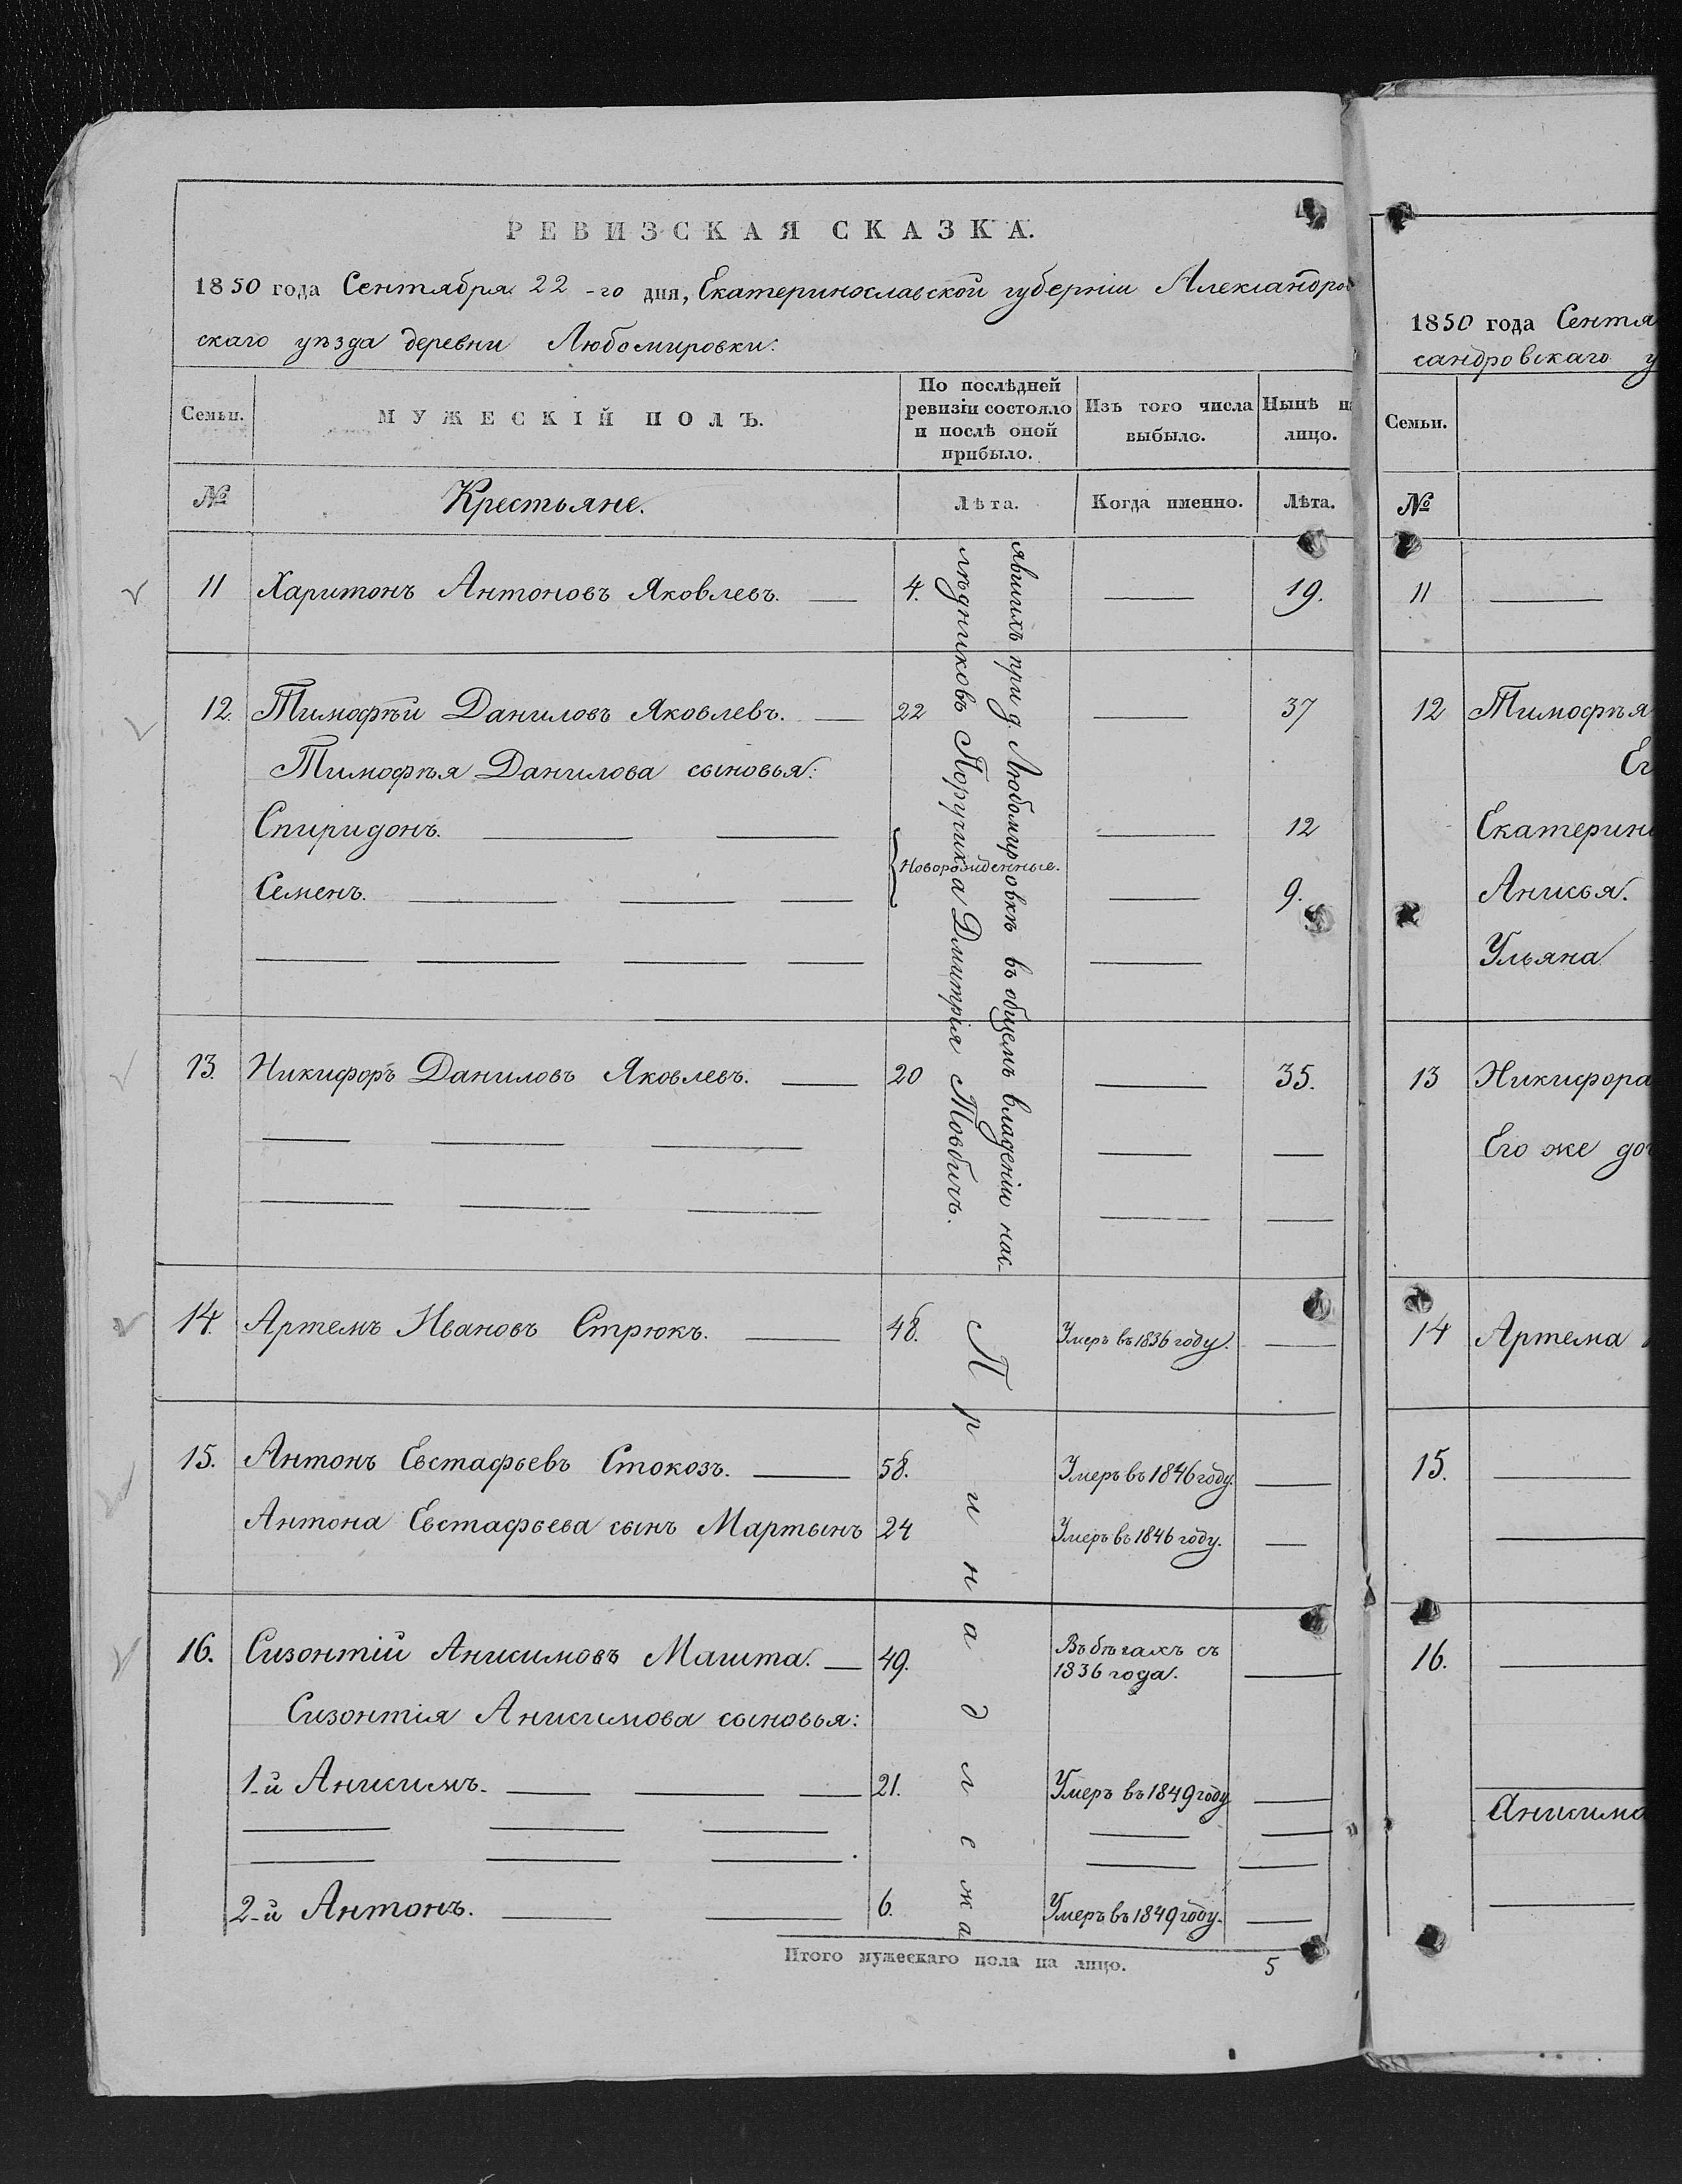 РЕВИЗСКАЯ СКАЗКА.
1850 года Сентября 22-го дня, Екатеринославской губерніи Александров
скаго уѣзда деревни Любомировки:
Семьи.
МУЖЕСКІЙ ПОЛЪ.
По послѣдней ревизіи состояло и послѣ оной прибыло.
Изъ того числа выбыло.
Нынѣ на лицо.
№
Крестьяне.
Лѣта.
Когда именно.
Лѣта.
11 Харитонъ Антоновъ Яковлевъ. 4. 19.
12. Тимофѣй Даниловъ Яковлевъ. 22 37
Тимофѣя Данилова сыновья:
Спиридонъ. 12
Новорожденные.
Семенъ. 9.
13. Никифоръ Даниловъ Яковлевъ. 20 35.
14. Артемъ Ивановъ Стрюкъ. 48. Умеръ въ 1836 году.
15. Антонъ Евстафьевъ Стокозъ. 58. Умеръ въ 1846 году.
Антона Евстафьева сынъ Мартынъ 24 Умеръ въ 1846 году.
16. Сизонтій Анисимовъ Машта. 49. Въ бѣгахъ съ
1836 года.
Сизонтія Анисимова сыновья:
1-й Аникимъ. 21. Умеръ въ 1849 году
2-й Антонъ. 6. Умеръ въ 1849 году.
Принадлежа
при д. Любомировкѣ въ общемъ владѣніи нас-
лѣдниковъ Поручика Дмитрія Товбичъ.
Итого мужескаго пола на лицо. 5
1850 года Сентя
сандровскаго у
Семьи.
№
11
12 Тимофѣя
Ег
Екатерин
Анисья.
Ульяна
13 Никифора
Его же до
14 Артема
15.
16.
Аникима